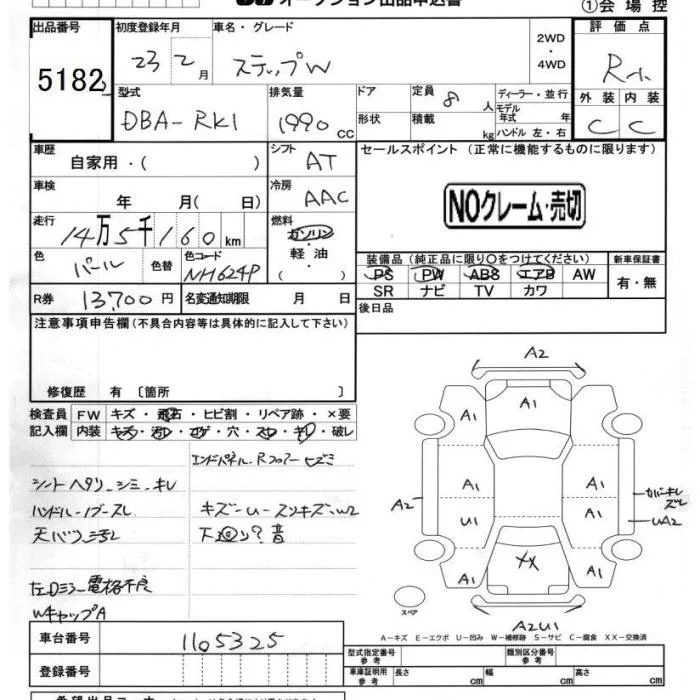 オークション出品申込書
①会場控
出品番号 初度登録年月 車名・グレード 2WD・4WD 評価点
5182 23 2月 ステップW R小
型式 排気量 ドア 定員 8人 ディーラー・並行 外装 内装
DBA-RK1 1990cc 形状 積載 kg モデル年式 年 ハンドル 左・右 C C
車歴 自家用・( ) シフト AT セールスポイント (正常に機能するものに限ります)
車検 年 月( 日) 冷房 AAC
NOクレーム・売切
走行 14万5千160km 燃料 ガソリン・軽油・( )
装備品(純正品に限り○をつけてください) 新車保証書
色 パール 色替 色コード NH624P
PS PW ABS エアB AW 有・無
SR ナビ TV カワ
R券 13700円 名変通知期限 月 日
後日品
注意事項申告欄(不具合内容等は具体的に記入して下さい)
修復歴 有 〔箇所 〕
検査員記入欄 FW キズ・飛石・ヒビ割・リペア跡・×要
内装 キズ・汚れ・コゲ・穴・スレ・キレ・破レ
エンドパネル、Rフロアーヒズミ
シートヘタリ、シミ、キレ
ハンドル・ノブースレ
キズ
天バリ汚レ
下廻り?音
左Dミラー電格不良
WキャップA
A2
A1
A1 A1
A2 A1 A1 カバーキレ ズレ
U1 A1 UA2
XX
A1 A1
スペア
A2U1
A-キズ E-エクボ U-凹み W-補修跡 S-サビ C-腐食 XX-交換済
車台番号 1105325
登録番号
型式指定番号 参考 類別区分番号 参考
車庫証明用 参考 長さ cm 幅 cm 高さ cm